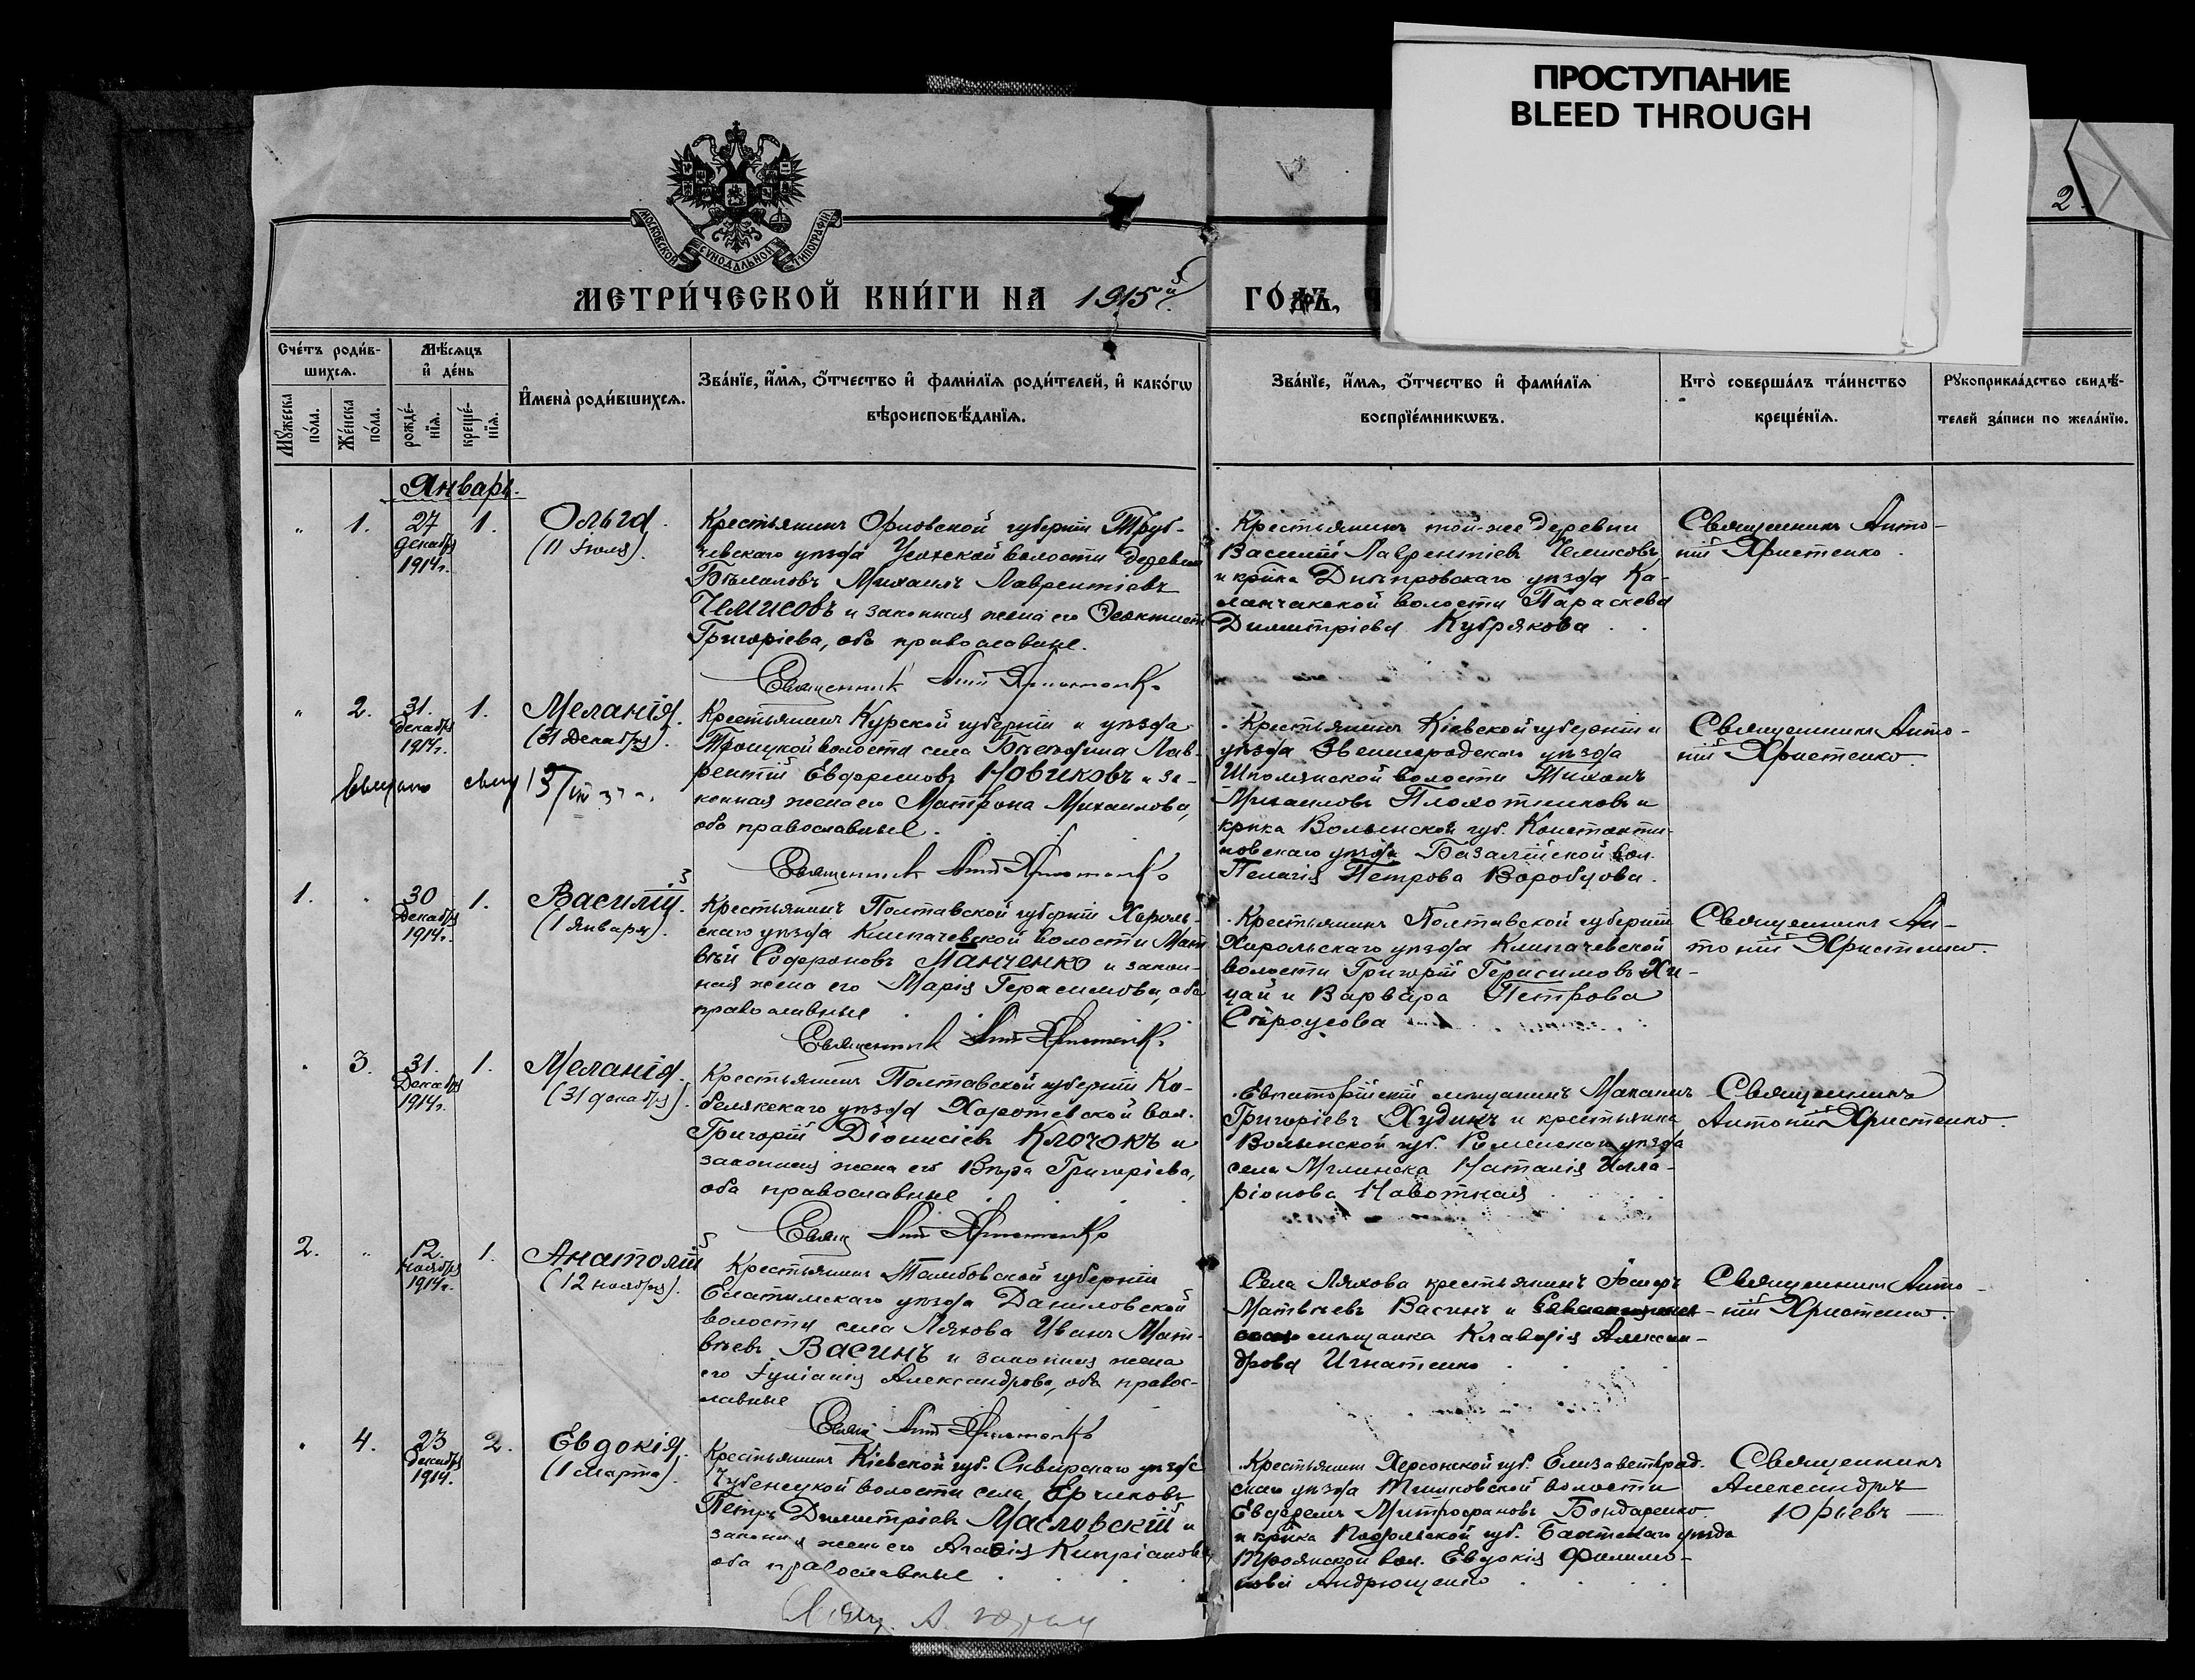 ПРОСТУПАНИЕ
BLEED THROUGH
2
МОСКОВСКОЙ СѴНОДАЛЬНОЙ ТИПОГРАФІИ
МЕТРИ́ЧЕСКОЙ КНИ́ГИ НА 1915й
ГО́ДЪ,
Сче́тъ роди́в-
шихсѧ.
Мѣ́сѧцъ
и҆ де́нь
Мꙋ́жеска
по́ла.
Же́нска
по́ла.
рожде́-
нїѧ.
креще́-
нїѧ.
И҆мена̀ роди́вшихсѧ.
Зва́нїе, и҆́мѧ, ѻ҆́тчество и҆ фами́лїѧ роди́телей, и҆ како́гѡ
вѣроисповѣ́данїѧ.
Зва́нїе, и҆́мѧ, ѻ҆́тчество и҆ фами́лїѧ
воспрїе́мникѡвъ.
Кто̀ соверша́лъ та́инство
креще́нїѧ.
Рꙋкоприкла́дство свидѣ́-
телей за́писи по жела́нїю.
Январь.
" 1. 27 декабр 1914г. 1.
Ольга.
(11 Іюля).
Крестьянинъ Орловской губерніи Труб-
чевскаго уѣзда волости деревни
Михаилъ Лаврентіевъ
Чемисовъ и законная жена его
Григоріева, оба православные.
Священникъ Ант Христенко
Крестьянинъ той-же деревни
Василій Лаврентіевъ Чемисовъ,
и кр-ка Днѣпровскаго уѣзда Ка-
ланчакской волости Параскева
Димитріева Кубрякова.
Священникъ Анто-
ній Христенко.
" 2. 31. декабр 1914г. 1.
Меланія.
(31 Декабря).
Крестьянинъ Курской губерніи и уѣзда
Троицкой волости села Лав-
рентій Евфремовъ Новиковъ и за-
конная жена его Матрона Михаилова,
оба православные.
Священникъ Ант Христенко
Крестьянинъ Кіевской губерніи и
уѣзда Звенигородскаго уѣзда
Шполянской волости Тихонъ
Михаиловъ Плохотниковъ и
кр-нка Волынской губ. Константи-
новскаго уѣзда Базалійской вол.
Пелагія Петрова Воробцова.
Священникъ Анто-
ній Христенко.
1. " 30 Декабр 1914г. 1.
Василій.
(1 Января).
Крестьянинъ Полтавской губерніи Хороль-
скаго уѣзда Клипачевской волости Мат-
вѣй Софроновъ Ланченко и закон-
ная жена его Марія Герасимова, оба
православные
Священникъ Ант Христенко
Крестьянинъ Полтавской губерніи
Хорольскаго уѣзда Клипачевской
волости Григорій Герасимовъ Хи-
цай и Варвара Петрова
Сѣроусова
Священникъ Ан-
тоній Христенко.
" 3. 31. Декабр 1914г. 1.
Меланія.
(31 декабря).
Крестьянинъ Полтавской губерніи Ко-
белякскаго уѣзда вол.
Григорій Діонисіевъ Клочокъ и
законная жена его Вѣра Григоріева,
оба православные
Свящ Ант Христенко
Евпаторійскій мѣщанинъ
Григоріевъ Худинъ и крестьянка
Волынской губ. уѣзда
села Наталія Илла-
ріонова
Священникъ
Антоній Христенко.
2. " 12. Ноября 1914г. 1.
Анатолій
(12 ноября).
Крестьянинъ Тамбовской губерніи
Елатомскаго уѣзда Даниловской
волости села Ляхова Иванъ Мат-
вѣевъ Васинъ и законная жена
его Іуліанія Александрова, оба правос-
лавные
Свящ Ант Христенко
Села Ляхова крестьянинъ Іосифъ
Матвѣевъ Васинъ и
мѣщанка Клавдія Алексан-
дрова Игнатенко
Священникъ Анто-
ній Христенко.
" 4. 23 декабр 1914. 2.
Евдокія.
(1 Марта).
Крестьянинъ Кіевской губ. Сквирскаго уѣзда
волости села
Петръ Димитріевъ Масловскій и
законная жена его Кипріанова
оба православные
Свящ. А.
Крестьянинъ Херсонской губ. Елизаветград-
скаго уѣзда волости
Евфремъ Митрофановъ Бондаренко
и кр-нка Подольской губ. Балтскаго уѣзда
Троянской вол. Евдокія Филимо-
нова Андрющенко
Священникъ
Александръ
Юрьевъ